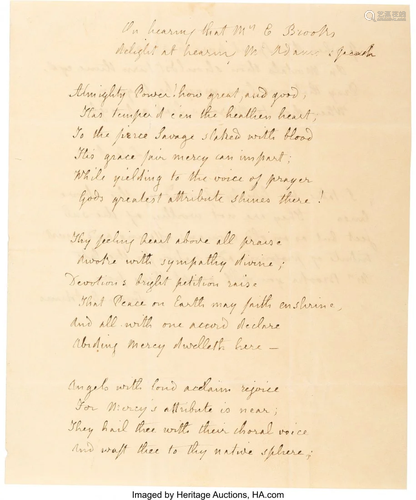 On hearing that Mrs E Brooks
delight at hearing Mr Adams' speech
Almighty Power! how great, and good,
Has temper'd e'en the heathen heart;
To the fierce Savage slaked with blood
His grace fair mercy can impart;
While yielding to the voice of prayer
Gods greatest attribute shines there!
Thy feeling heart above all praise
Awoke with sympathy divine;
Devotions bright petition raise
That Peace on Earth may faith enshrine,
And all with one accord declare
Abiding Mercy dwelleth here —
Angels with loud acclaim rejoice
For Mercy's attribute is near;
They hail thee with their choral voice
And waft thee to thy native sphere;
Imaged by Heritage Auctions, HA.com